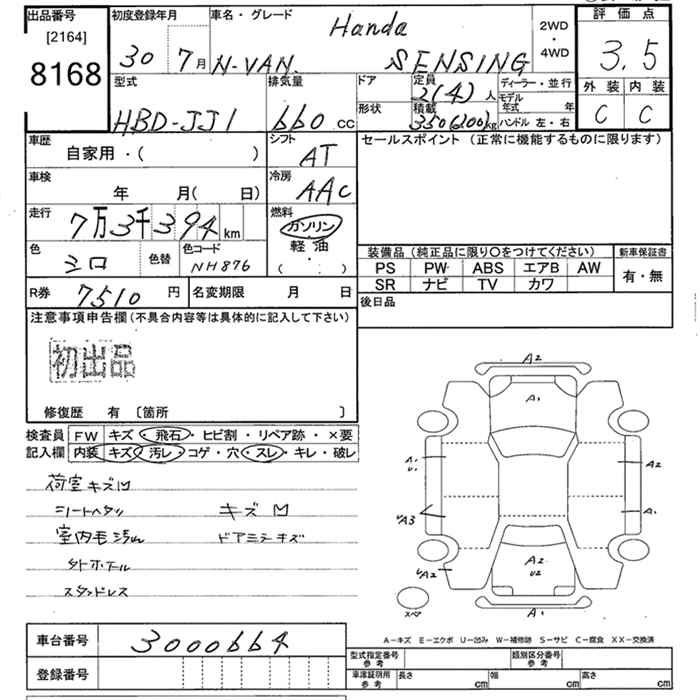 出品番号
[2164]
8168
初度登録年月
30 7月
車名・グレード
Handa
N-VAN SENSING
2WD
・
4WD
評価点
3.5
外装 内装
C C
型式
HBD-JJ1
排気量
660 CC
ドア
形状
定員
2(4)人
積載
350(200)kg
ディーラー・並行
モデル年式 年
ハンドル 左・右
車歴
自家用・( )
シフト
AT
セールスポイント (正常に機能するものに限ります)
車検
年 月( 日)
冷房
AAC
走行
7万3千394km
燃料
ガソリン
軽油
( ・ )
色
シロ
色替
色コード
NH876
装備品(純正品に限り〇をつけてください)
新車保証書
PS PW ABS エアB AW
有・無
SR ナビ TV カワ
R券 7510円
名変期限 月 日
後日品
注意事項申告欄(不具合内容等は具体的に記入して下さい)
初出品
修復歴 有 〔箇所 〕
検査員
記入欄
FW キズ・飛石・ヒビ割・リペア跡・×要
内装 キズ・汚レ・コゲ・穴・スレ・キレ・破レ
荷室キズM
シートヘタリ
キズM
室内毛汚れ
ドアミラーキズ
スタッドレス
A2
A1
A1
U1
A2
UA3
A1
UA2
A2
U2
A1
スペア
A-キズ E-エクボ U-凹み W-補修跡 S-サビ C-腐食 XX-交換済
車台番号
3000664
登録番号
型式指定番号
参考
類別区分番号
参考
車庫証明用
参考
長さ cm
幅 cm
高さ cm